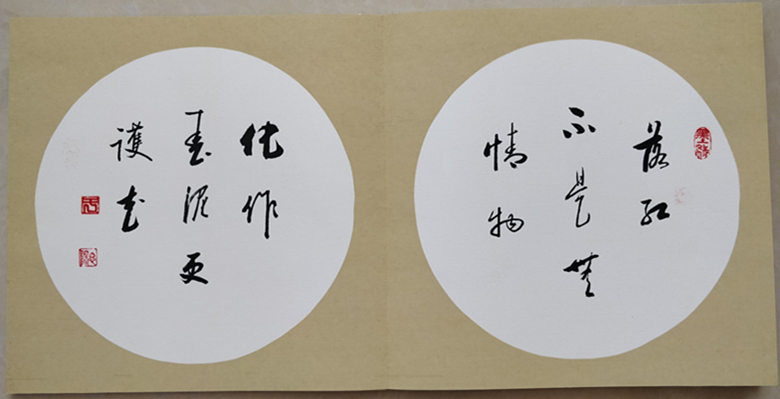 落红
不是無
情物
化作
春泥更
護花